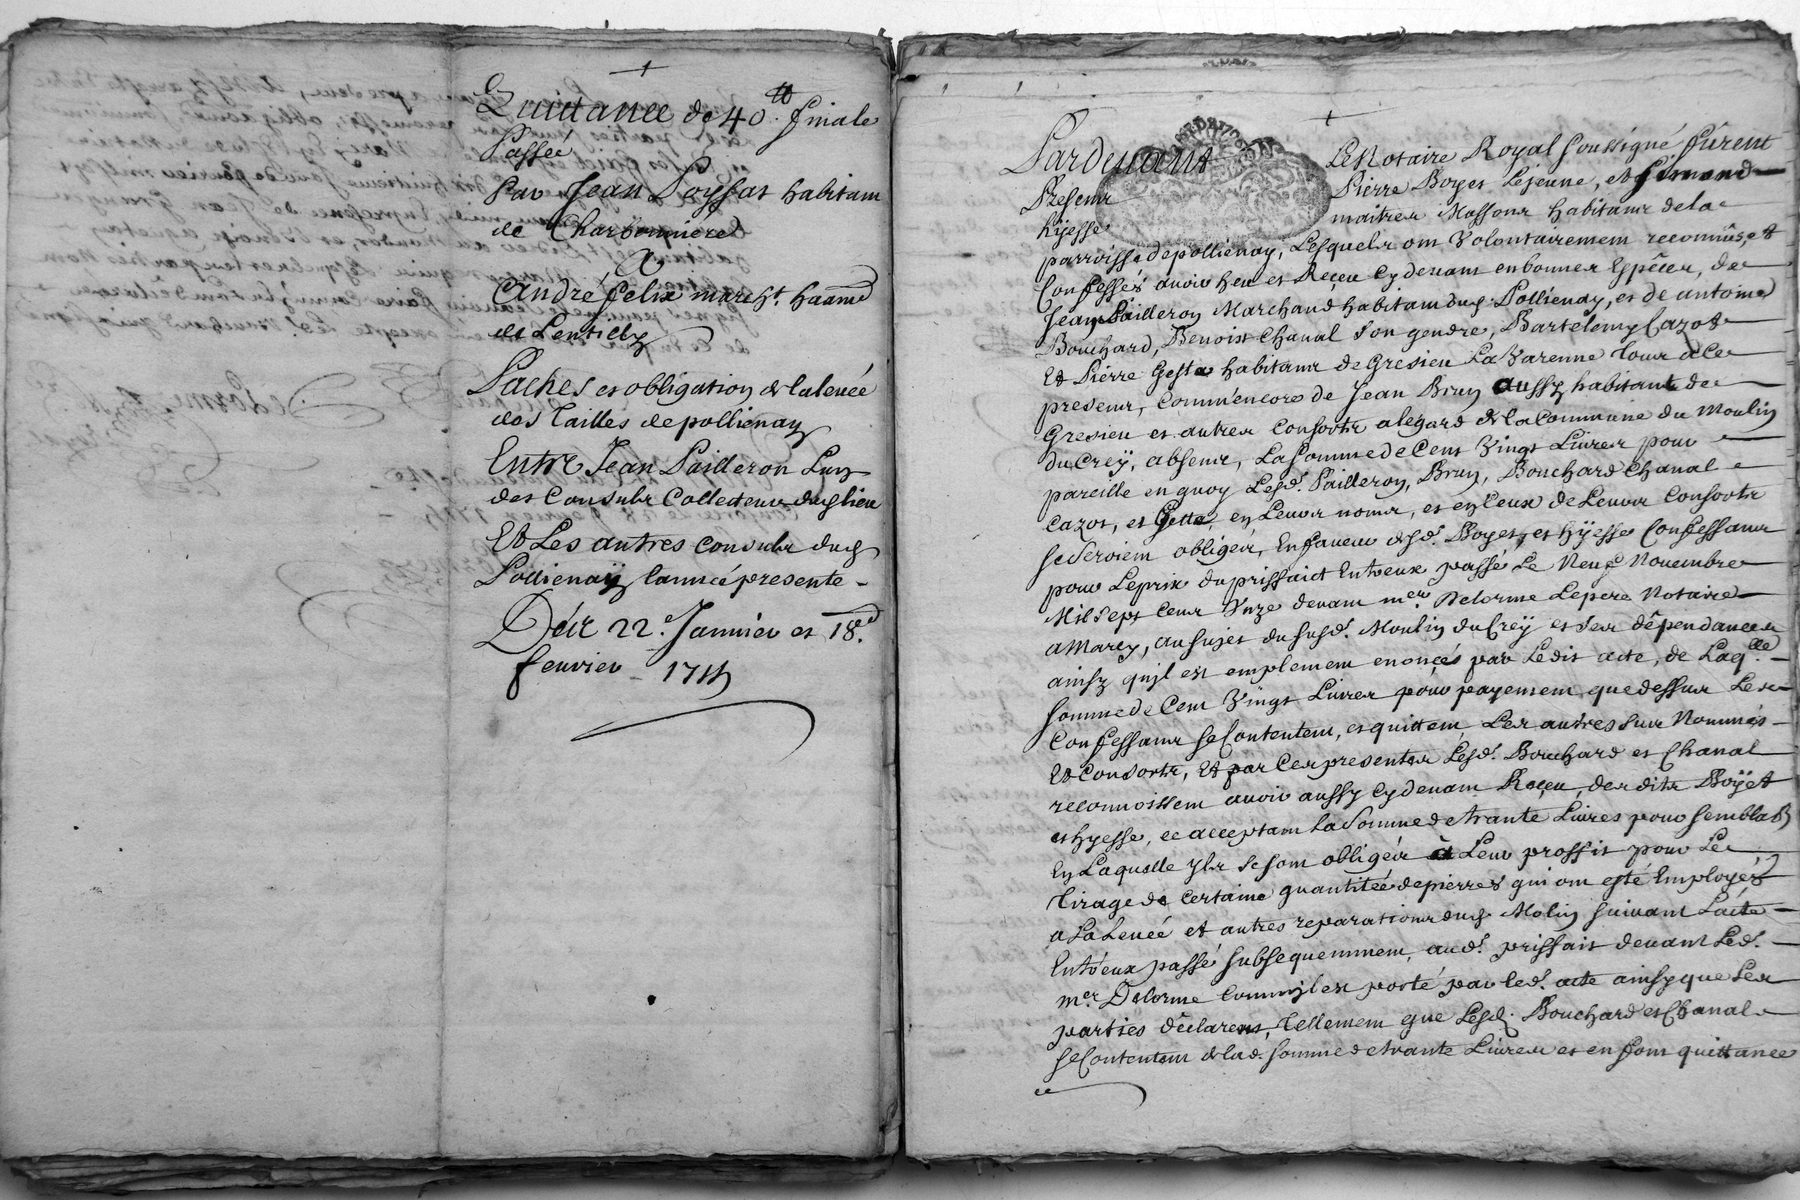 Quittance de 40.# finale
Passée
Par Jean Poyssat habitant
de Charbonnieres
A
André felix march.t haant
de Lentilly
Paches et obligation de la levée
des Tailles de pollienay
Entre Jean Pailleron Lun
des Consulz Collecteurs dud lieu
Et Les autres consulz dud
Pollienaÿ lannéé presente -
Des 22.e Janvier et 18.e
fevrier - 1715
Pardevant Le Notaire Royal soussigné fûrent
Presens Pierre Boyet Lejeune, et
hÿesse maitres Massons habitans de la
parroisse de pollienay, Lesquels ont Volontairement reconnûs, et
Confessés avoir heu et Reçeu Cy devant en bonnes Espêces, de
Jean Pailleron Marchand habitant dud. Pollienay, et de antoine
Bouchard, Benoist Chanal son gendre, Bartelemy Cazot
Et Piérre Gesta habitans de Gresieu La Varenne Tous a Ce
presens, Comm'encores de Jean Brun aussy habitant de
Gresieu et autres Consorts alégard de la Commune du Moulin
du Creÿ, absens, La Somme de Cent Vingt Livres pour
pareille en quoy Lesd. Pailleron, Brun, Bouchard Chanal
Cazot, et Getta, en Leurs noms, et en Ceux de Leurs Consorts
se Seroient obligés, En faveur desd. Boyet, et hÿesse Confessans
pour Leprix du prisfaict Entreux passé Le Neuf Novembre
Mil Sept Cens Unze devant me.r Delorme Lepere Notaire
a Marcy, au sujet du susd. Moulin du Creÿ et ses dêpendances
ainsy quil est emplement enoncés par Ledit acte, de Laq.lle
somme de Cent Vingt Livres pour payement que dessus Les
Confessans se Contentent, et quittent Les autres sus Nommés
Et Consorts, Et par Ces presentes Lesd. Bouchard et Chanal
reconnoissent avoir aussy Cy devant Reçeu, des dits Boÿet
et hyesse, ce acceptant La Somme de trante Livres pour semblab
En Laquelle ÿls se sont obligés à Leur proffit pour Le
Tirage de certaine quantitée de pierres qui ont esté Employés
a La Levéé et autres reparations dud. Molin suivant Lacte
Entreux passé subsequemment, aud. prisfait devant Led.
me.r Delorme Comm'il est porté par led. acte ainsy que Les
parties déclarent, Tellement que Lesd. Bouchard et Chanal
se Contentent de lad. somme de trante Livres et en font quittance